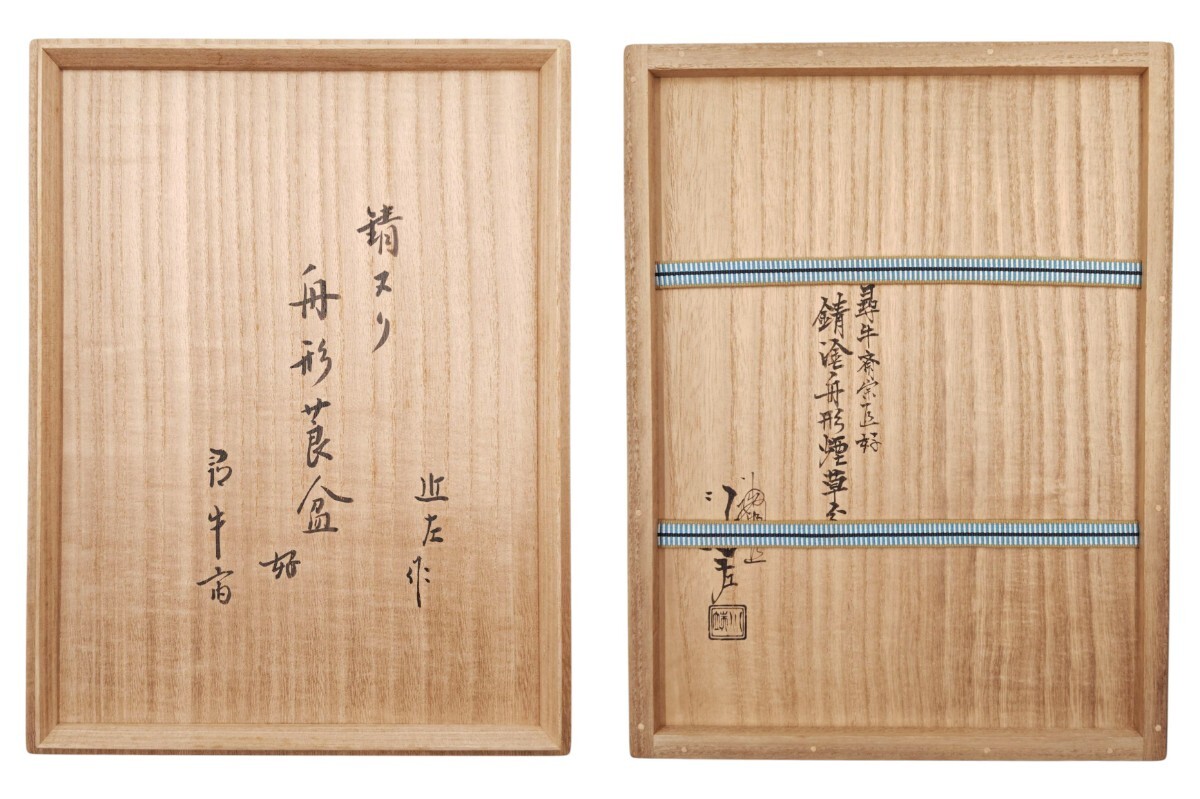 近左作
錆ヌリ
舟形莨盆
好
尋牛斎
尋牛斎宗匠好
錆塗舟形煙草
左
川端